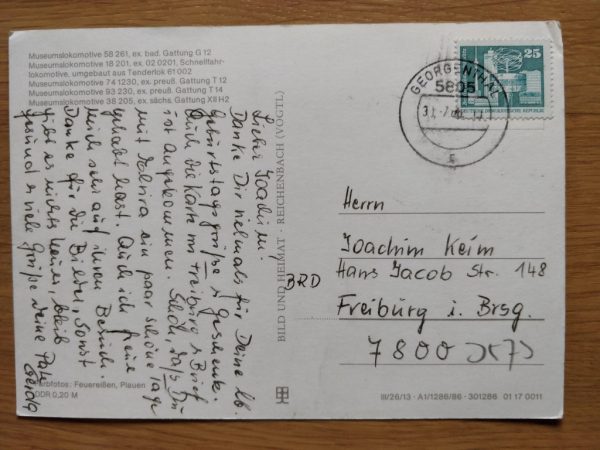 Museumslokomotive 58 261, ex. bad. Gattung G 12
Museumslokomotive 18 201, ex. 02 0201, Schnellfahr-
lokomotive, umgebaut aus Tenderlok 61 002
Museumslokomotive 74 1230, ex. preuß. Gattung T 12
Museumslokomotive 93 230, ex. preuß. Gattung T 14
Museumslokomotive 38 205, ex. sächs. Gattung XII H2
Lieber Joachim!
Danke Dir vielmals für Deine lb.
Geburtstagsgrüße u Geschenke.
Auch die Karte von Freiburg u Brief
ist angekommen. Schön, daß Du
mit ein paar schöne Tage
gehabt hast. Auch ich freue
mich sehr auf ihren Besuch.
Danke für die Bilder, Sonst
gibt es nichts neues, bleib
gesund u viele Grüße, Deine Pate
Gerda
Farbfotos: Feuereißen, Plauen
DDR 0,20 M
BILD UND HEIMAT · REICHENBACH (VOGTL)
25
GEORGENTHAL
5805
c
Herrn
Joachim Keim
Hans Jacob Str. 148
BRD
Freiburg i. Brsg.
7800
III/26/13 · A1/1286/86 · 301286 01 17 0011